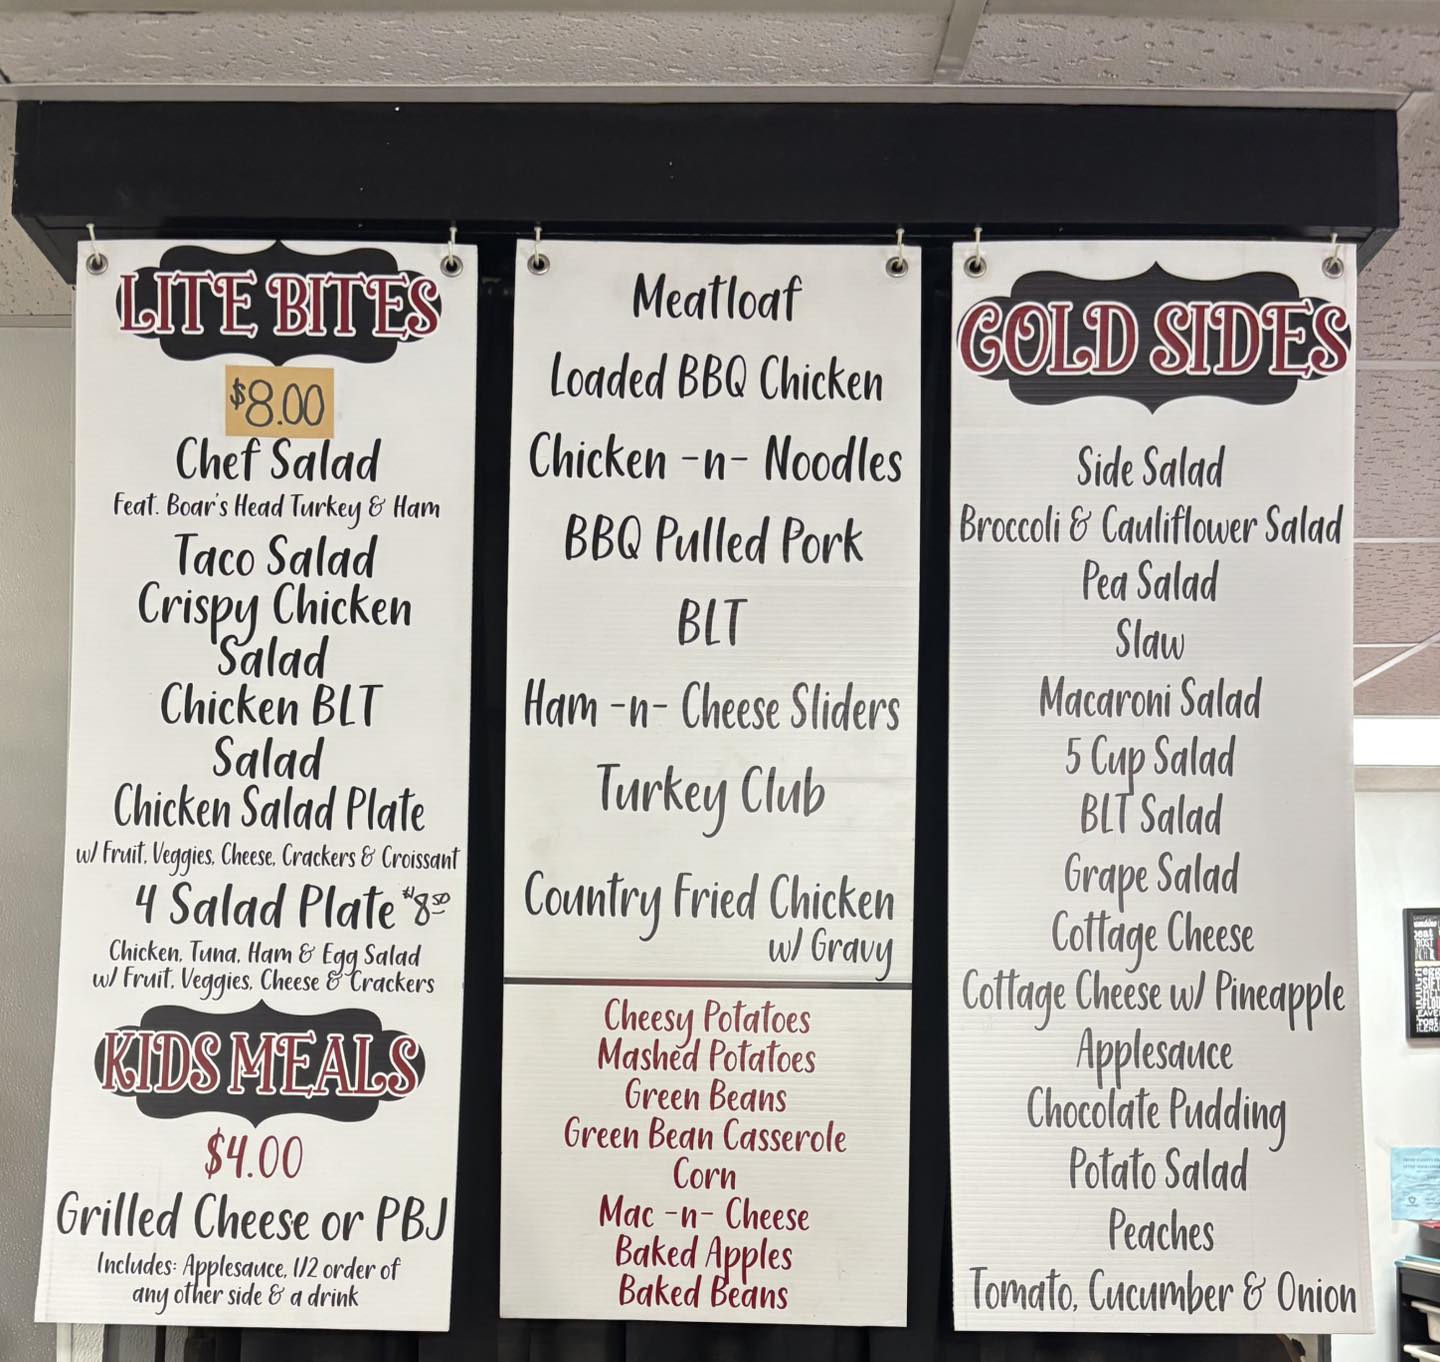 LITE BITES
$8.00
Chef Salad
Feat. Boar's Head Turkey & Ham
Taco Salad
Crispy Chicken
Salad
Chicken BLT
Salad
Chicken Salad Plate
w/ Fruit, Veggies, Cheese, Crackers & Croissant
4 Salad Plate $8.50
Chicken, Tuna, Ham & Egg Salad
w/ Fruit, Veggies, Cheese & Crackers
KIDS MEALS
$4.00
Grilled Cheese or PBJ
Includes: Applesauce, 1/2 order of
any other side & a drink
Meatloaf
Loaded BBQ Chicken
Chicken -n- Noodles
BBQ Pulled Pork
BLT
Ham -n- Cheese Sliders
Turkey Club
Country Fried Chicken
w/ Gravy
Cheesy Potatoes
Mashed Potatoes
Green Beans
Green Bean Casserole
Corn
Mac -n- Cheese
Baked Apples
Baked Beans
COLD SIDES
Side Salad
Broccoli & Cauliflower Salad
Pea Salad
Slaw
Macaroni Salad
5 Cup Salad
BLT Salad
Grape Salad
Cottage Cheese
Cottage Cheese w/ Pineapple
Applesauce
Chocolate Pudding
Potato Salad
Peaches
Tomato, Cucumber & Onion